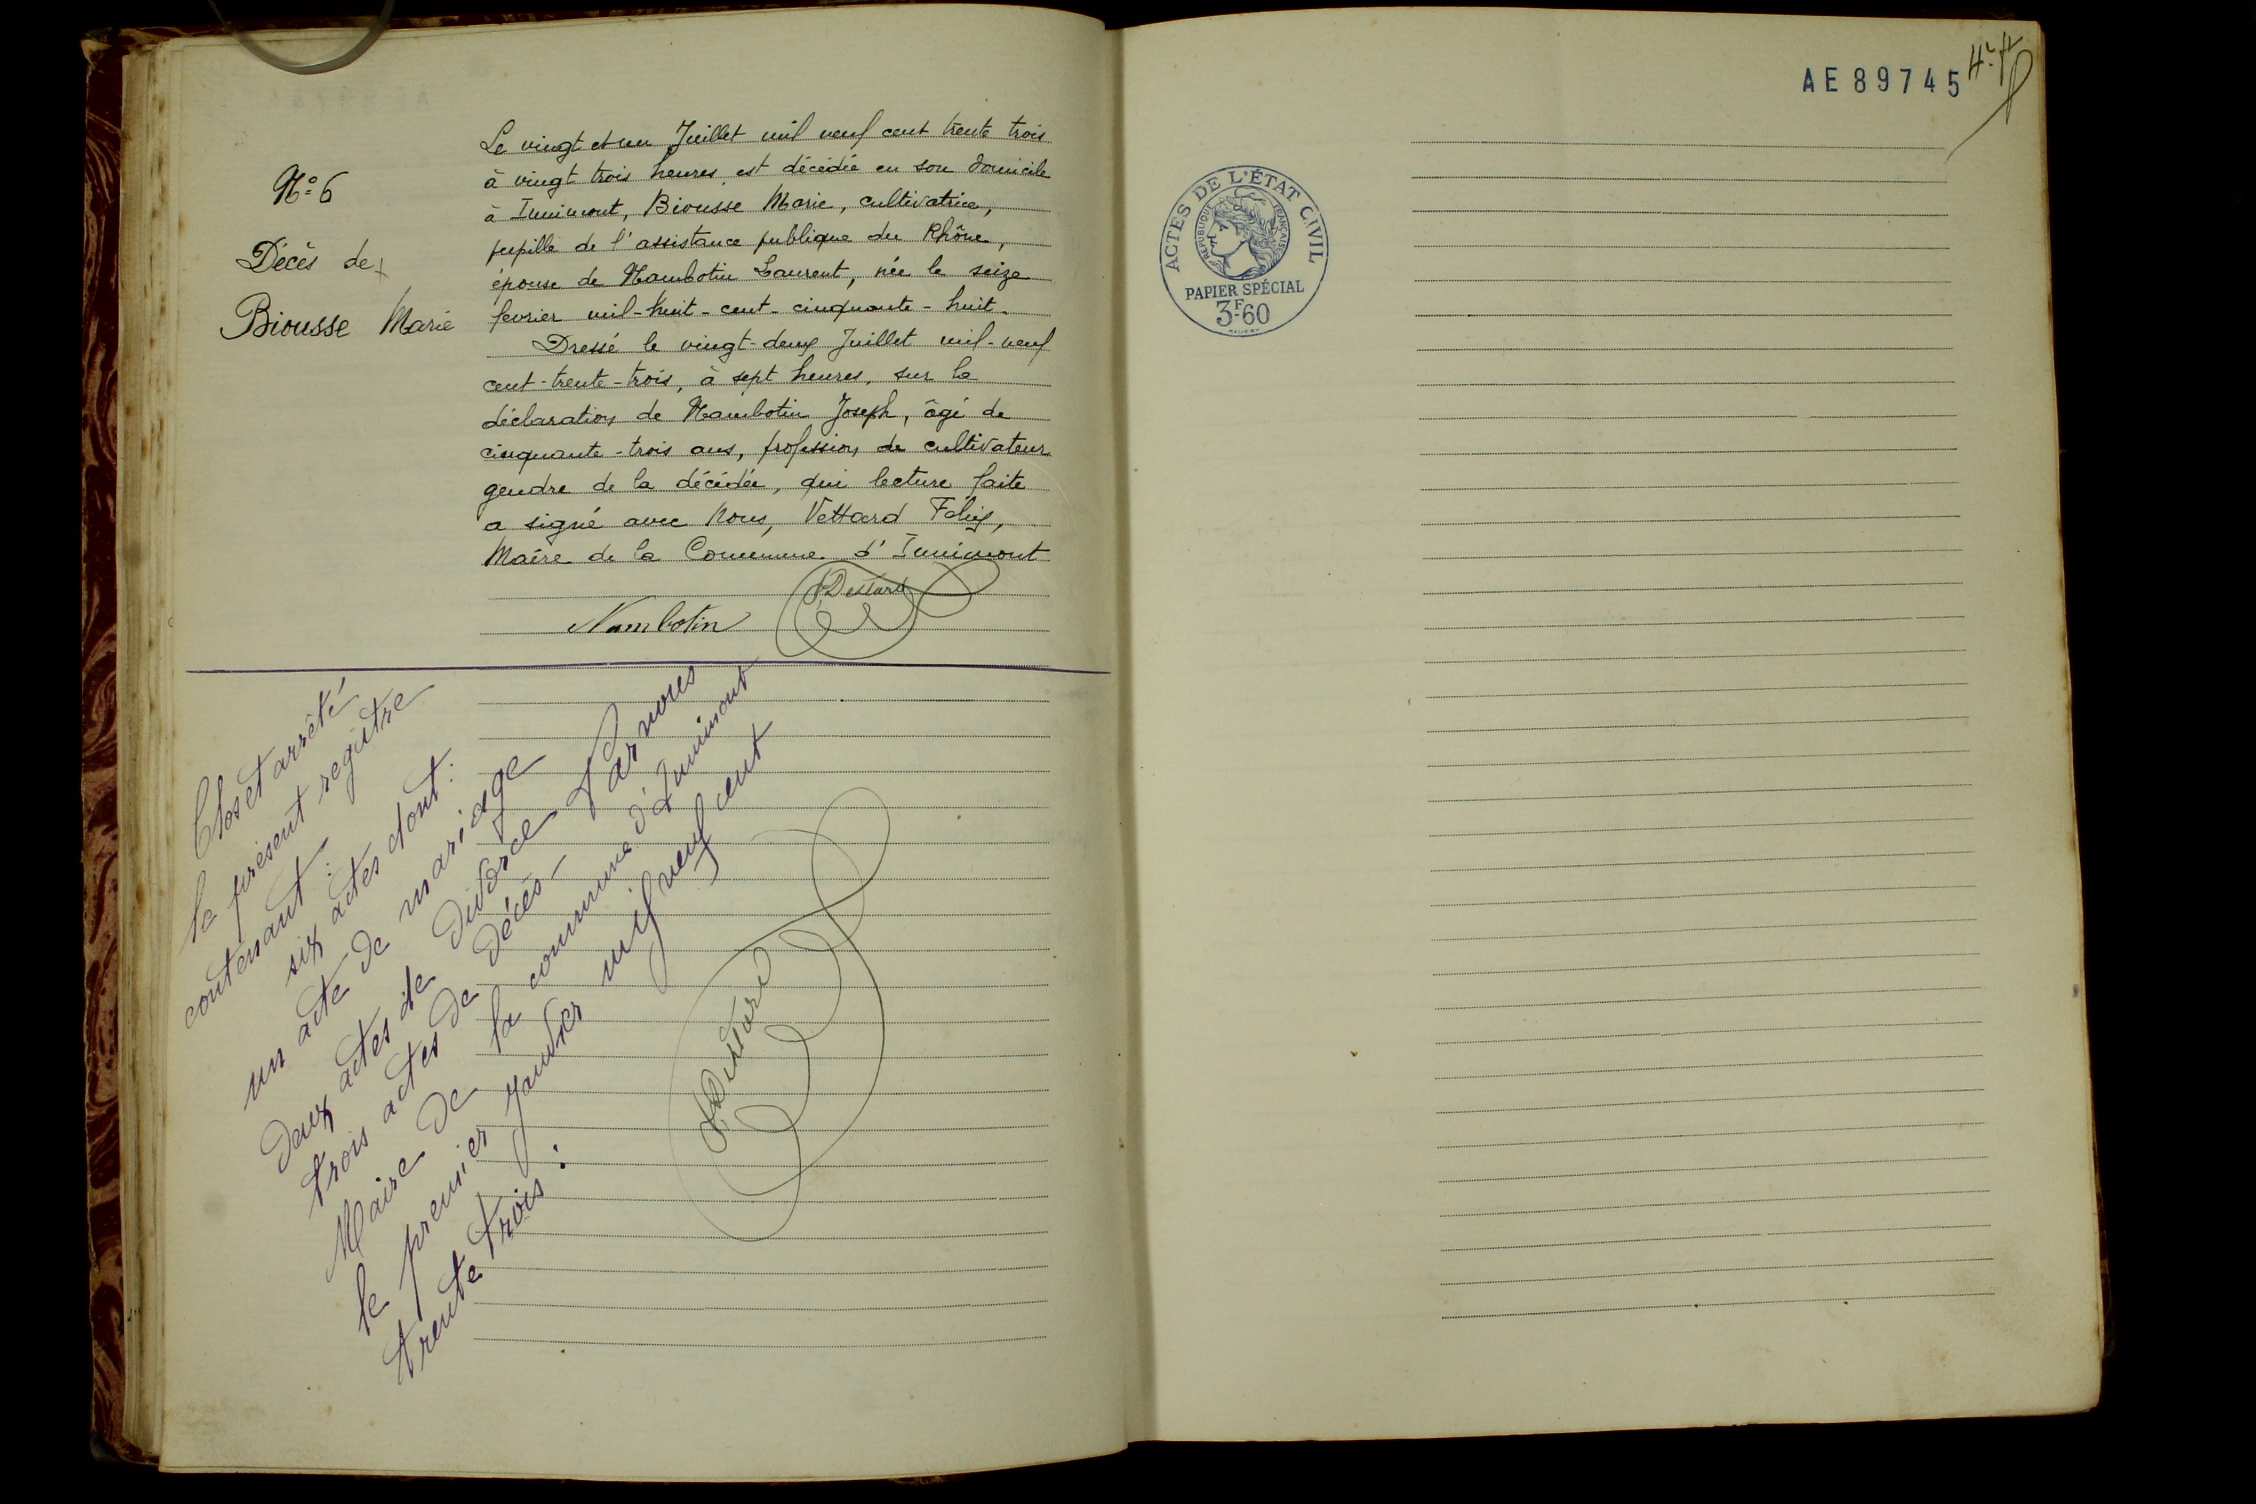 N° 6
Décès de
Biousse Marie
Le vingt et un Juillet mil neuf cent trente trois
à vingt trois heures est décédée en son domicile
à Innimont, Biousse Marie, cultivatrice,
pupille de l'assistance publique du Rhône,
épouse de Nambotin Laurent, née le seize
fevrier mil-huit-cent-cinquante-huit.
Dressé le vingt-deux Juillet mil-neuf
cent-trente-trois, à sept heures, sur la
déclaration de Nambotin Joseph, âgé de
cinquante-trois ans, profession de cultivateur
gendre de la décédée, qui lecture faite
a signé avec Nous, Vettard Félix,
Maire de la Commune d'Innimont
Nambotin
Clos et arrêté
le présent registre
contenant :
six actes dont :
un acte de mariage
deux actes de divorce
trois actes de décès - Par nous
Maire de la commune d'Innimont
le premier Janvier mil neuf cent
trente trois :
AE 89745
ACTES DE L'ÉTAT CIVIL
RÉPUBLIQUE FRANÇAISE
PAPIER SPÉCIAL
3F.60